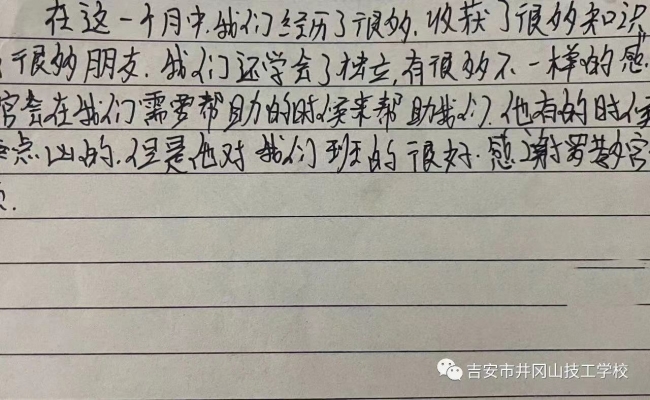 在这一个月中,我们经历了很多,收获了很多知识
很多朋友.我们还学会了独立,有很多不一样的感
官会在我们需要帮助的时候来帮助我们.他有的时候
点凶的.但是他对我们班的很好.感谢罗教官
吉安市井冈山技工学校